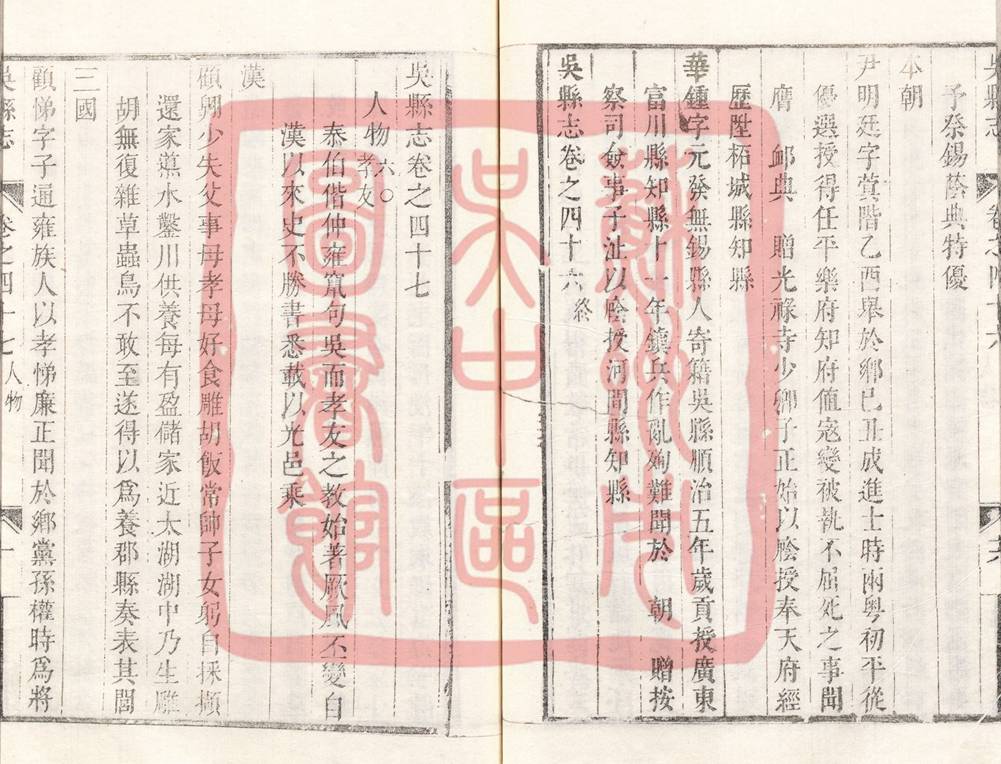 吳縣志
卷之四十六
予祭錫蔭典特優
本朝
尹明廷字蓂階乙酉舉於鄉己丑成進士時兩粵初平從
優選授得任平樂府知府值寇變被執不屈死之事聞
膺 䘏典 贈光祿寺少卿子正始以廕授奉天府經
歷陞柘城縣知縣
華鍾字元發無錫縣人寄籍吳縣順治五年歲貢授廣東
富川縣知縣十一年鎮兵作亂殉難聞於 朝 贈按
察司僉事子沚以廕授河間縣知縣
吳縣志卷之四十六 終
吳縣志卷之四十七
人物六○孝友
泰伯偕仲雍竄句吳而孝友之教始著厥風丕變自
漢以來史不勝書悉載以光邑乘
漢
顧翱少失父事母孝母好食雕胡飯常帥子女躬自採擷
還家導水鑿川供養每有盈儲家近太湖湖中乃生雕
胡無復雜草蟲鳥不敢至遂得以爲養郡縣奏表其閭
三國
顧悌字子通雍族人以孝悌廉正聞於鄉黨孫權時爲將
吳縣志
卷之四十七 人物
一
蘇州市
吳中區
圖書館